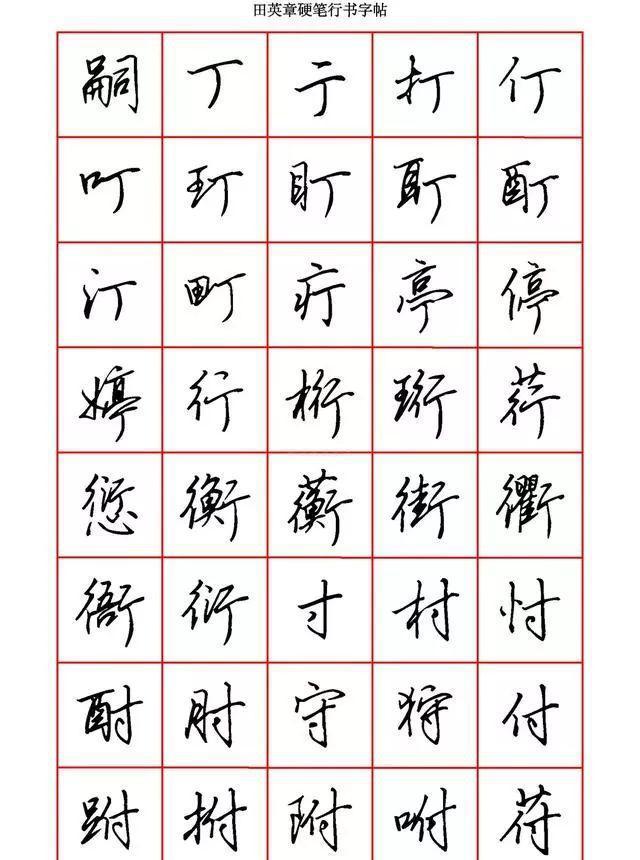 田英章硬笔行书字帖
嗣 丁 亍 打 仃
叮 玎 盯 耵 酊
汀 町 疔 亭 停
婷 行 桁 珩 荇
愆 衡 蘅 街 衢
衙 衍 寸 村 忖
酎 肘 守 狩 付
跗 拊 附 咐 苻